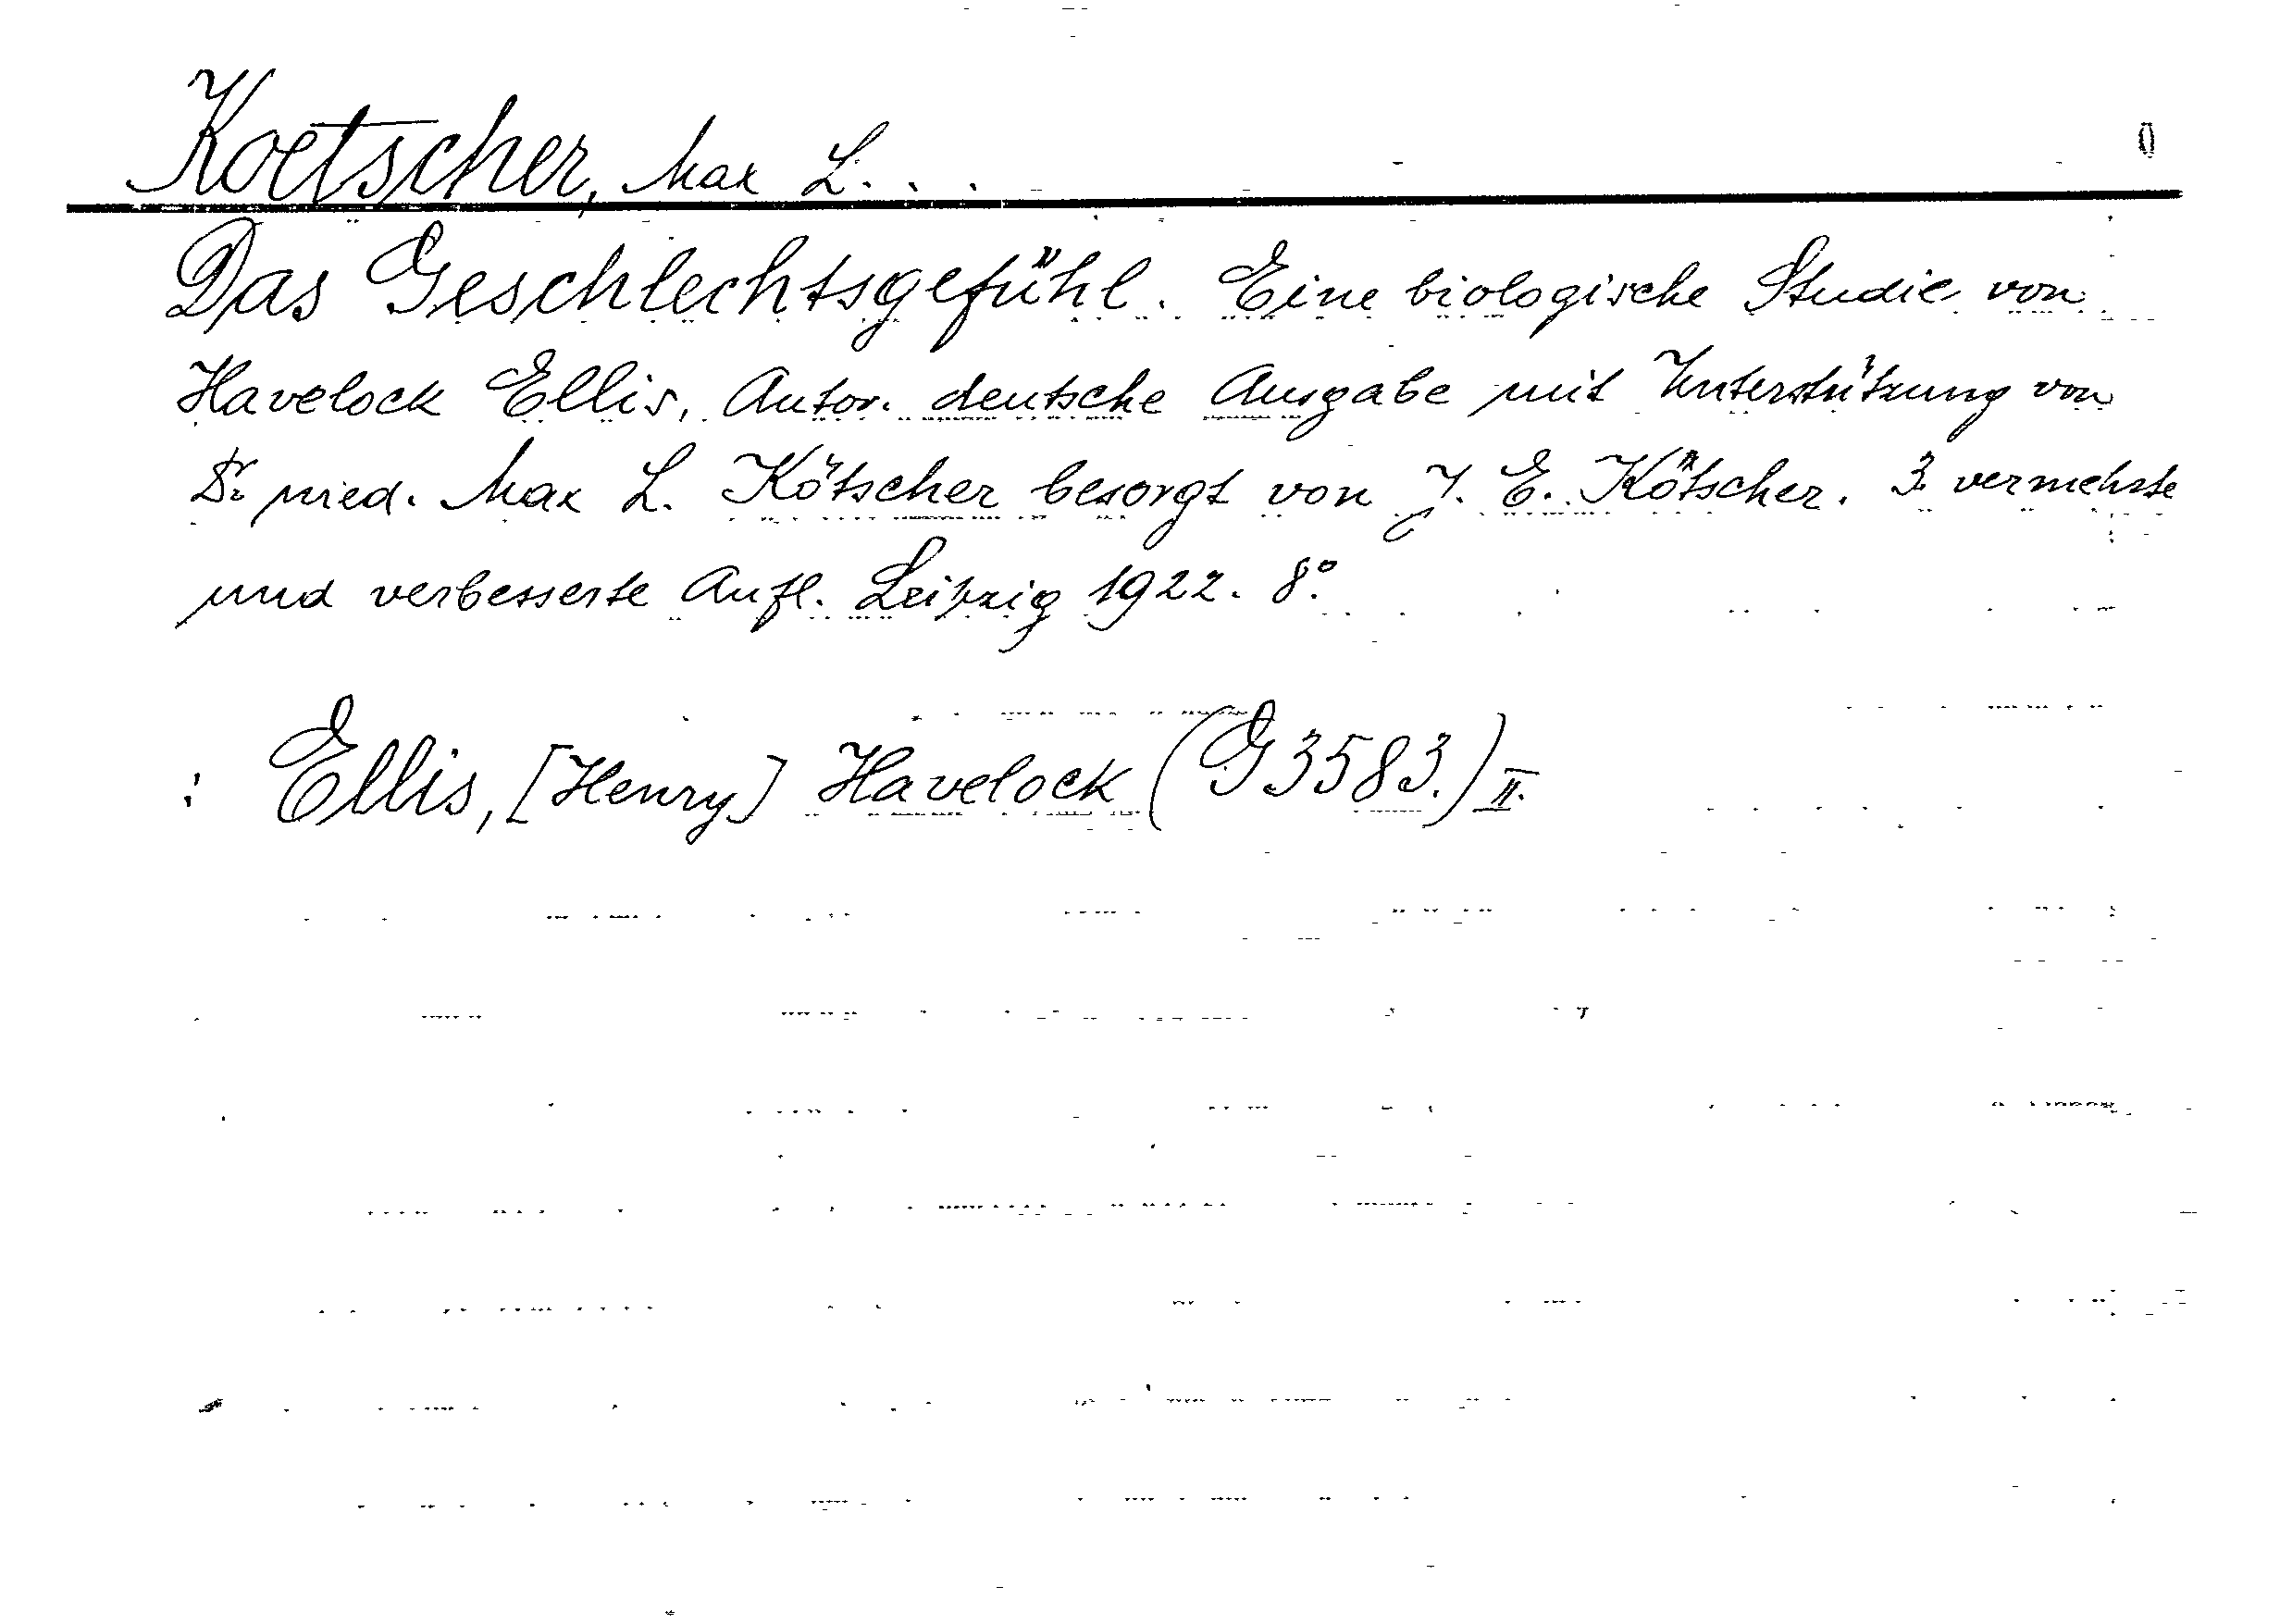 Koetscher, Max L. . .
Das Geschlechtsgefühl. Eine biologische Studie von
Havelock Ellis, Autor. deutsche Ausgabe mit Unterstützung von
Dr. med. Max L. Kötscher besorgt von J. E. Kötscher. 3. vermehrte
und verbesserte Aufl. Leipzig 1922. 8°.
: Ellis, [Henry] Havelock (G 3583.) II.